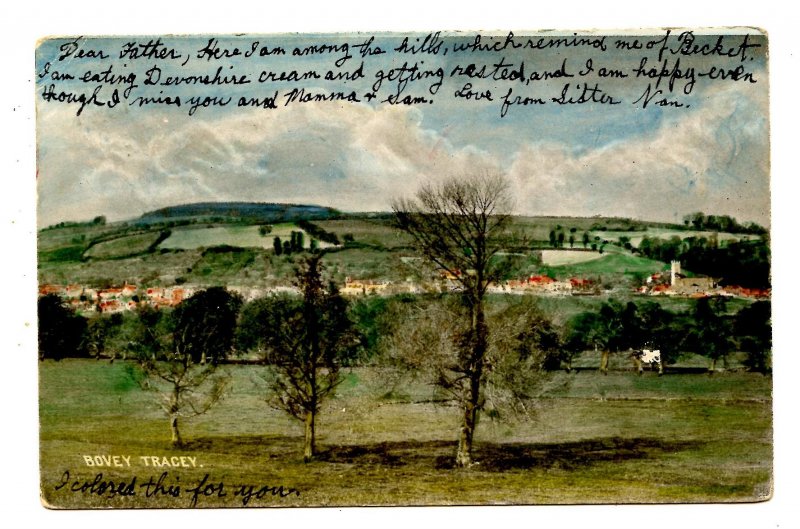 Dear Father, Here I am among the hills, which remind me of Becket.
I am eating Devonshire cream and getting rested, and I am happy-even
though I miss you and Mamma + Sam. Love from Sister Nan.
BOVEY TRACEY.
I colored this for you.